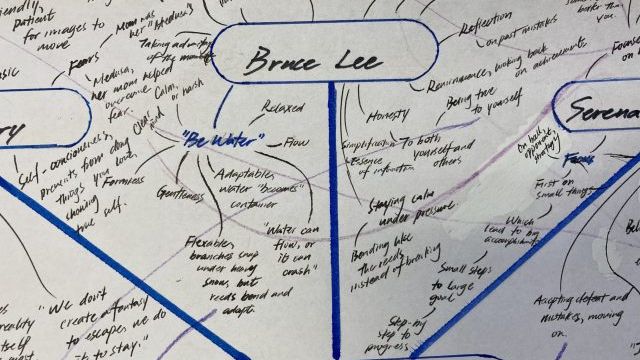 friendly,
patient
for images to
move
Fears
Mom was
her "Medusa"
Taking advantage
of the moment
Medusa,
her mom helped
overcome
fear
Calm,
or harsh
Relaxed
"Be Water"
Flow
Formless
Gentleness
Adaptable,
water "becomes"
container
Flexable,
branches snap
under heavy
snow, but
reeds bend and
adapt.
"Water can
flow, or
it can
crash"
Self-conciousness,
prevents from doing
things you love,
showing
true self.
Bruce Lee
Reflection
on past mistakes
Reminiscence, looking back
on achievements
Honesty
Being true
to yourself
To both
yourself and
others
Simplification
Essence
of
Staying calm
under pressure
Bending like
the reeds
instead of breaking
Small steps
to large
goal
Step-by
step to
progress
First on
small things
Which
lead to big
accomplishments
On ball,
opponent,
strategy
Focus
Serena
than
you.
Accepting defeat and
mistakes, moving
on.
"We don't
create a fantasy
to escape, we do
it to stay."
reality
itself